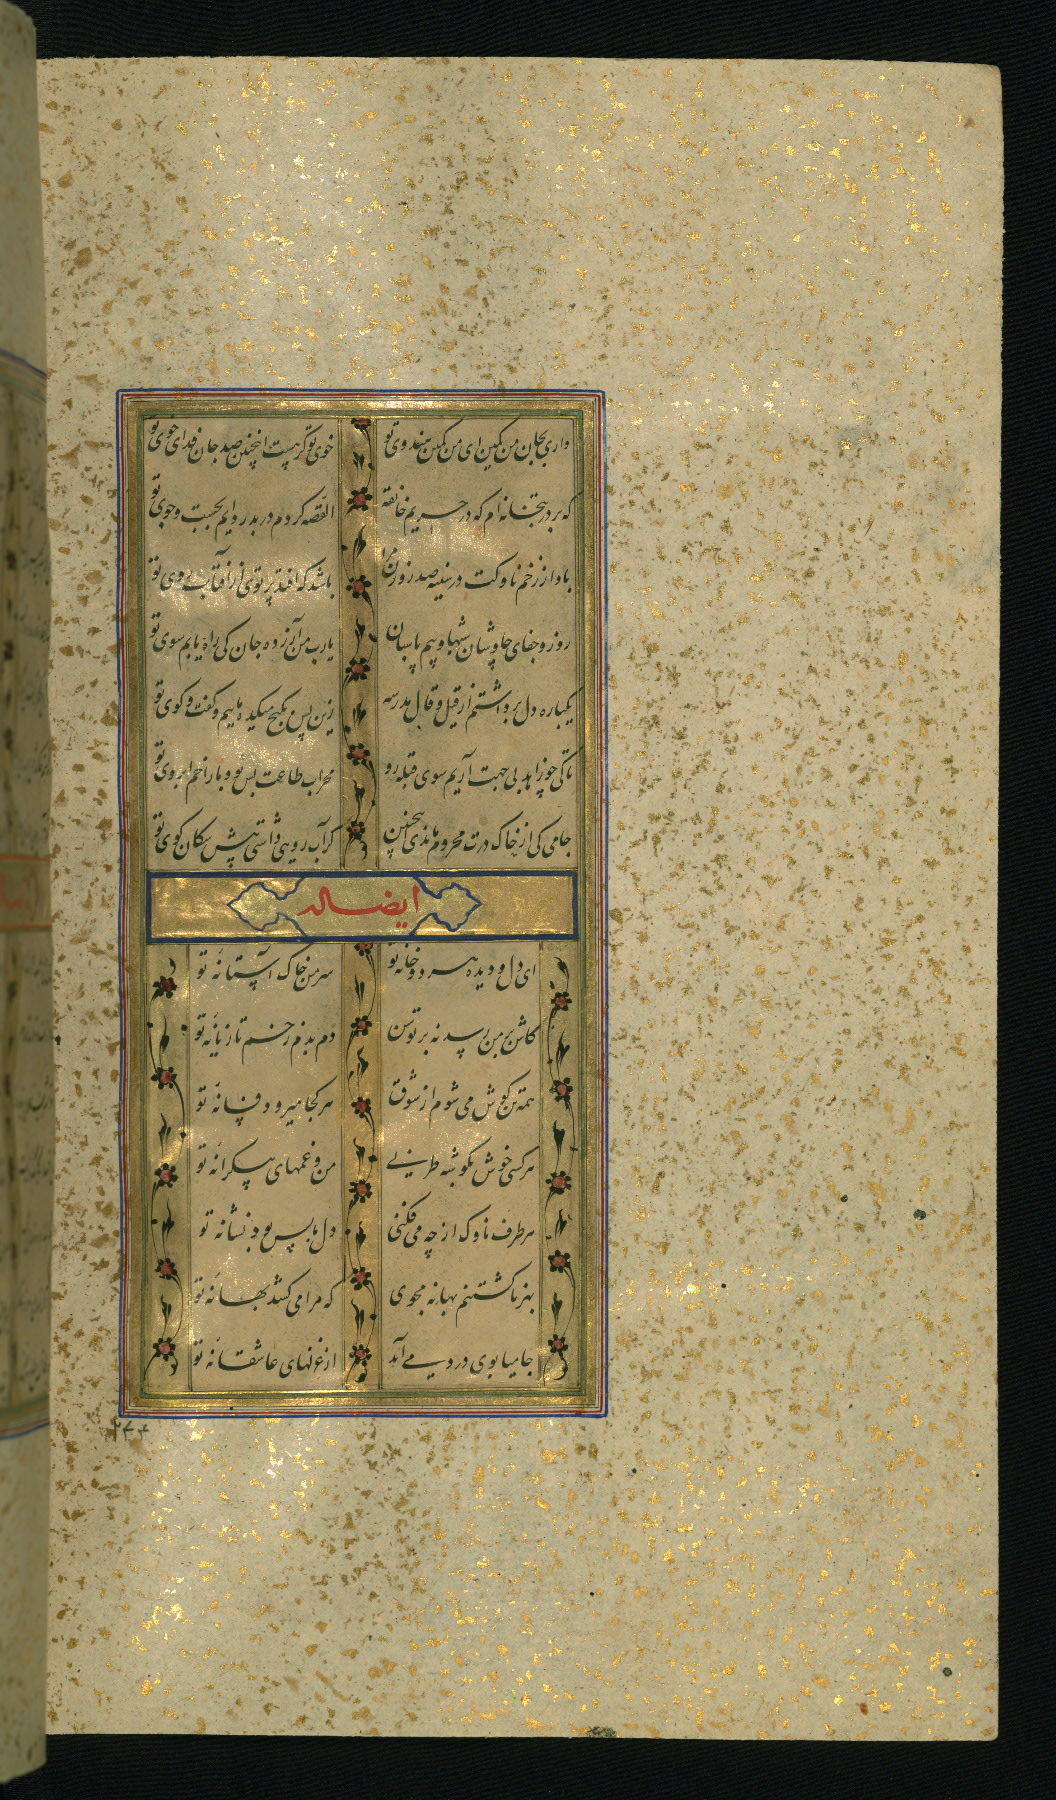 داری بجان من کمین ای من کمین هندوی تو خوی تو گر هست اینچنین صد جان فدای خوی تو
که بر در بتخانه ام که در حریم خانقه القصه کردم در بدر و ایم بجست و جوی تو
بادا ز زخم ناوکت در سینه صد روزن مرا باشد که افتد پرتوی زان آفتاب روی تو
روز و جفای چاوشان شبها و بیم پاسبان یارب من آزرده جان کی راه یابم سوی تو
یکباره دل برداشتم از قیل و قال مدرسه زین پس بکنج میکده ماییم و گفت و گوی تو
تا کی چو زاهد بی جهت آریم سوی قبله رو محراب طاعت بس بود ما را خم ابروی تو
جامی کی از خاک درت محروم ماندی اینچنین گر آب رویی داشتی پیش سگان کوی تو
ایضاله
ای دل و دیده هر دو خانه تو سر من خاک آستانه تو
کاش بر من رسد نه بر توسن دم بدم زخم تازیانه تو
همه تن گوش می شوم از شوق هر کجا میرود فسانه تو
هر کسی خوش بگوشه طربی من و غمهای بیکرانه تو
هر طرف ناوک از چه می فکنی دل ما بس بود نشانه تو
بهر ناکشتنم بهانه مجوی که مرا می کشد بهانه تو
جامیا بوی درد می آید از غزلهای عاشقانه تو
۲۴۴